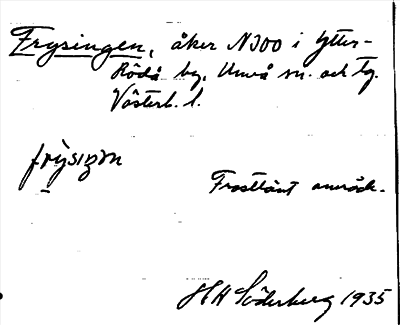 Frysingen, åker N300 i Ytter-
Rödå by, Umeå sn. och tg.
Västerb. l.
frỳsıŋɜn
Frostlänt område.
H H Söderberg 1935